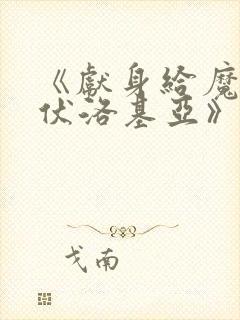 《獻身給魔
伏洛基亞》
戈南